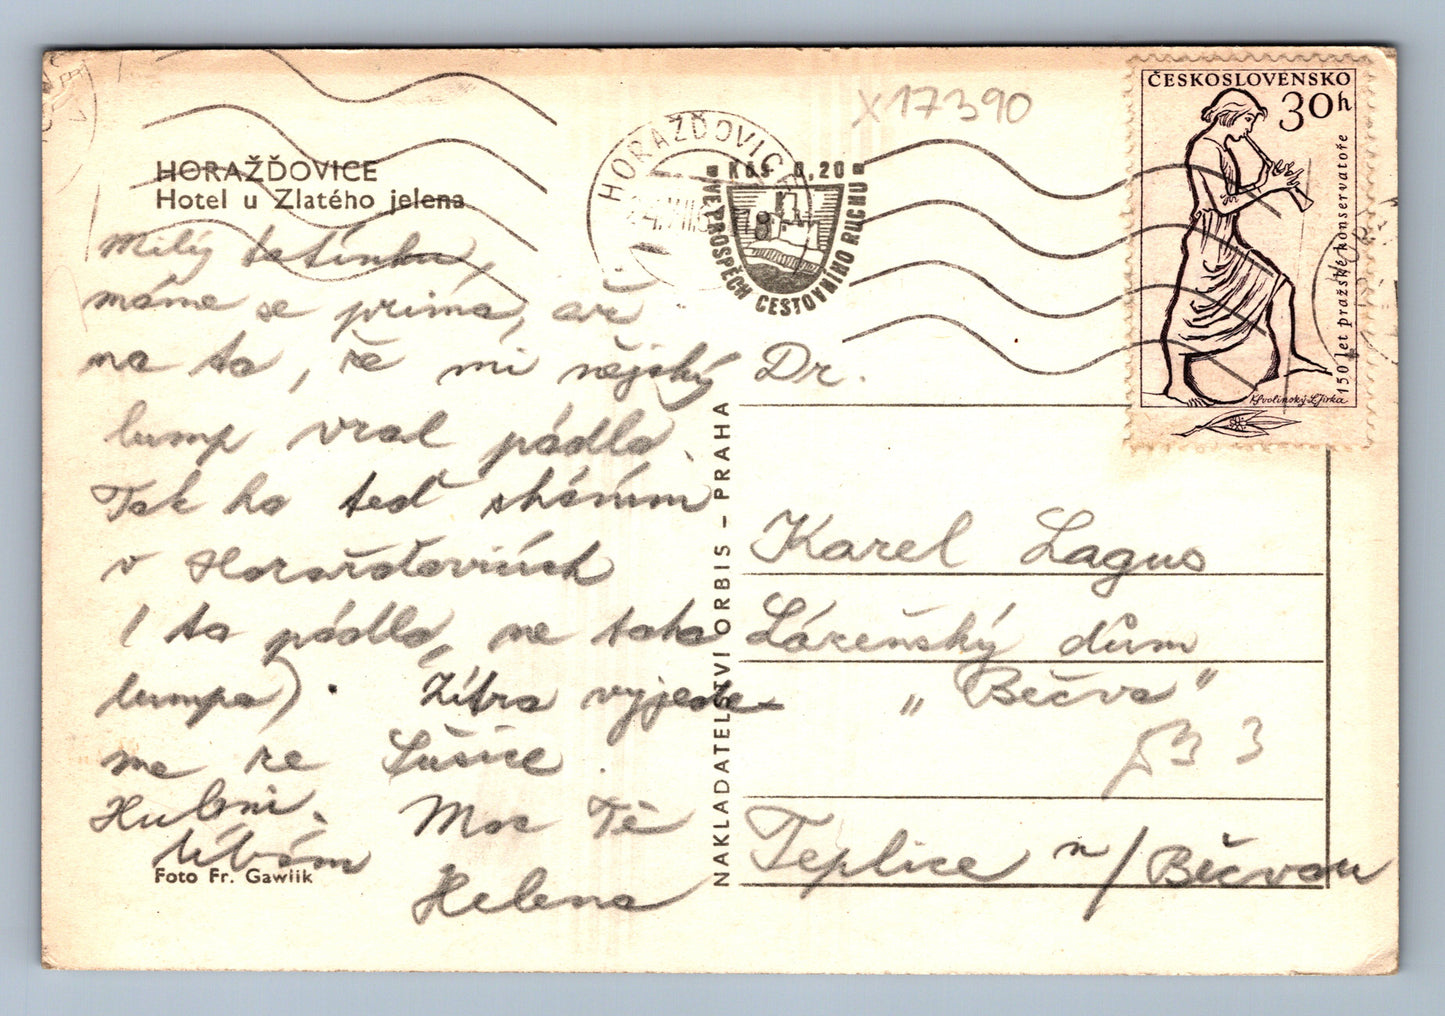 X17390
ČESKOSLOVENSKO
30h
150 let pražské konservatoře
K.Svolinský-L.Jirka
HORAŽĎOVICE
Kčs 0,20
VE PROSPĚCH CESTOVNÍHO RUCHU
HORAŽĎOVICE
Hotel u Zlatého jelena
Milý tatínku,
máme se prima, až
na to, že mi nějaký
lump vzal pádlo.
Tak ho teď sháním
v Horažďovicích
(to pádlo, ne toho
lumpa). Zítra vyjede-
me ze Sušice.
Moc Tě
líbám
Helena
Foto Fr. Gawlik
NAKLADATELSTVÍ ORBIS – PRAHA
Dr.
Karel Lagus
Lázeňský dům
„Bečva"
Teplice n/Bečvou